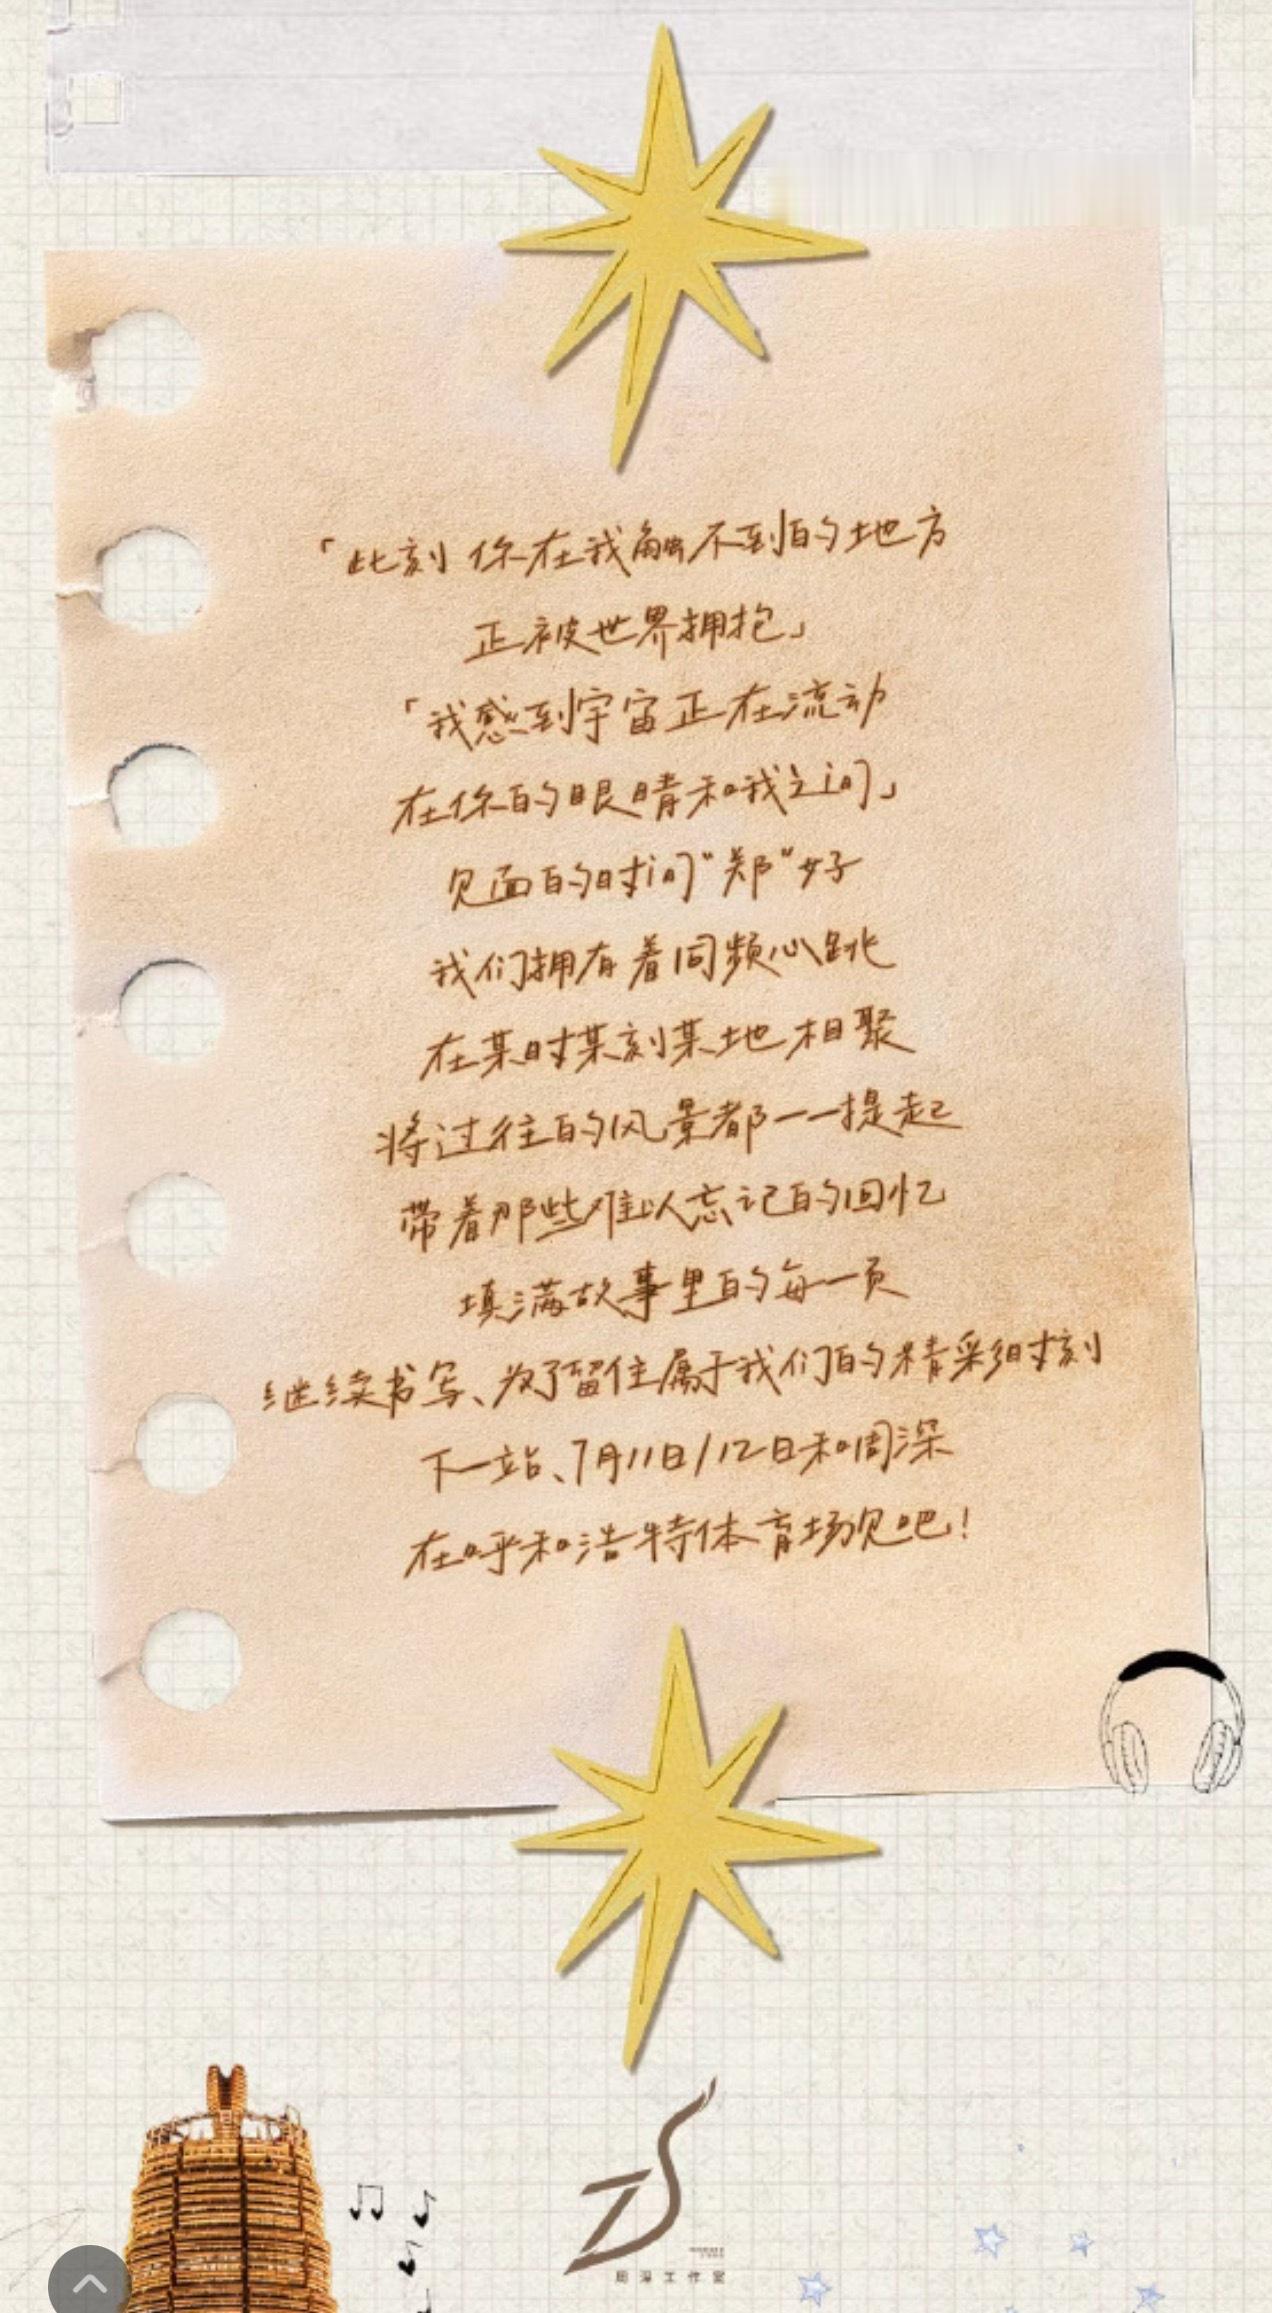 「此刻 你在我触不到的地方
正被世界拥抱」
「我感到宇宙正在流动
在你的眼睛和我之间」
见面的时间“郑”好
我们拥有着同频心跳
在某时某刻某地相聚
将过往的风景都一一提起
带着那些难以忘记的回忆
填满故事里的每一页
继续书写、为了留住属于我们的精彩时刻
下一站、7月11日/12日和周深
在呼和浩特体育场见吧!
ZS
周深工作室